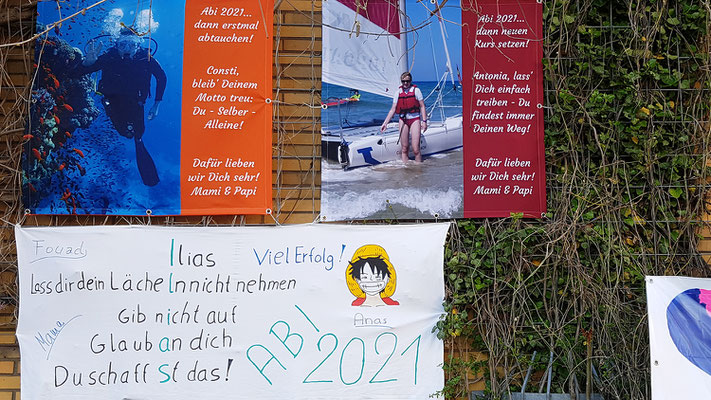 Abi 2021...
dann erstmal
abtauchen!
Consti,
bleib' Deinem
Motto treu:
Du - Selber -
Alleine!
Dafür lieben
wir Dich sehr!
Mami & Papi
Abi 2021...
dann neuen
Kurs setzen!
Antonia, lass'
Dich einfach
treiben - Du
findest immer
Deinen Weg!
Dafür lieben
wir Dich sehr!
Mami & Papi
Fouad
Ilias
Viel Erfolg!
Lass dir dein Lächeln nicht nehmen
Gib nicht auf
Glaub an dich
Du schaffst das!
Mama
Anas
ABI
2021